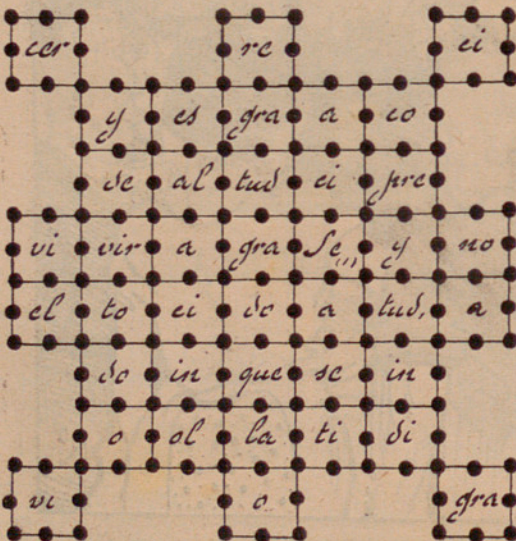 cer re ci
y es gra a co
de al tud ci pre
vi vir a gra Se,(1) y no
el to ci do a tud, a
do in que se in
o ol la ti di
vi o gra